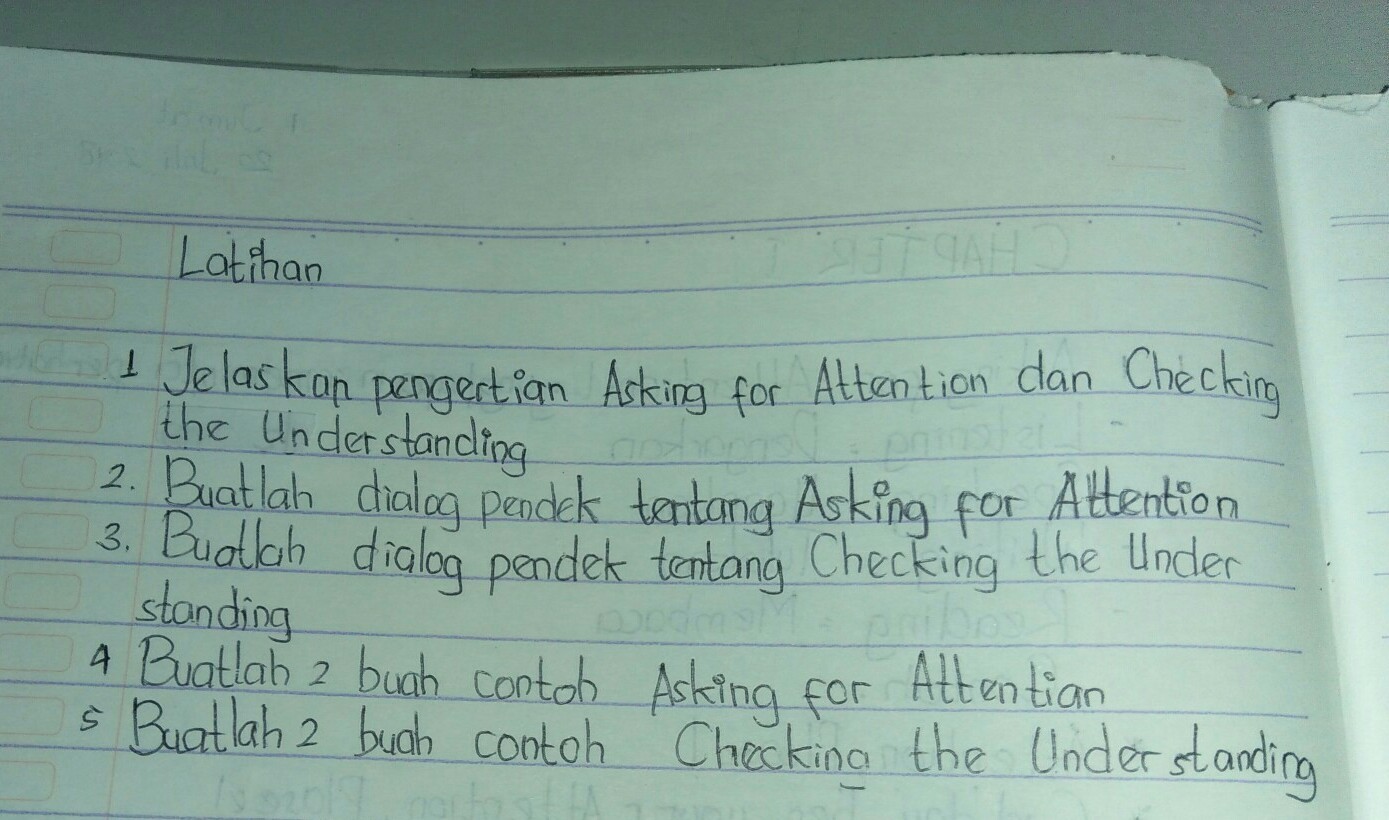 Latihan
1 Jelaskan pengertian Asking for Attention dan Checking
the Understanding
2. Buatlah dialog pendek tentang Asking for Attention
3. Buatlah dialog pendek tentang Checking the Under
standing
4 Buatlah 2 buah contoh Asking for Attentian
5 Buatlah 2 buah contoh Checking the Understanding